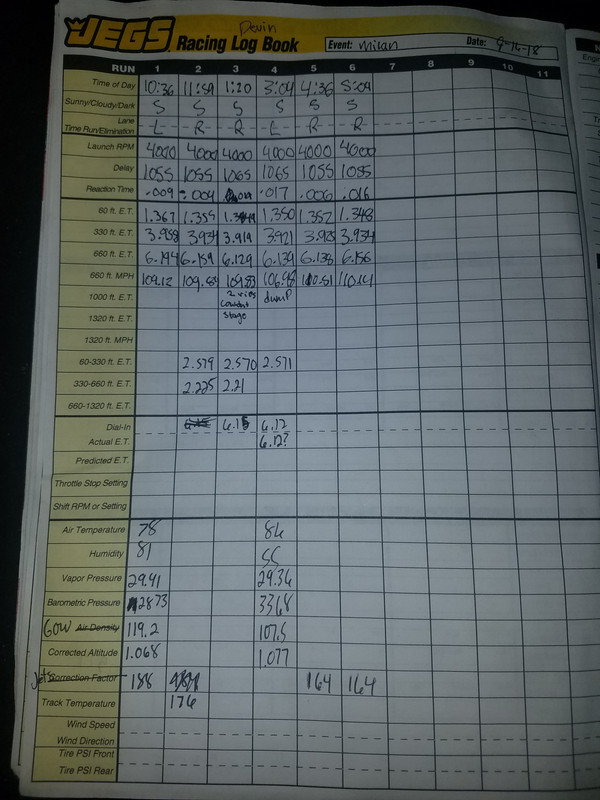 JEGS Devin
Racing Log Book Event: Milan Date: 9-16-18
RUN 1 2 3 4 5 6 7 8 9 10 11
Time of Day 10:36 11:59 1:20 3:04 4:36 5:04
Sunny/Cloudy/Dark S S S S S S
Lane L R R L R R
Time Run/Elimination
Launch RPM 4000 4000 4000 4000 4000 4000
Delay 1055 1055 1065 1065 1055 1055
Reaction Time .009 .004 .017 .006 .016
60 ft. E.T. 1.367 1.355 1.350 1.352 1.348
330 ft. E.T. 3.958 3.934 3.919 3.921 3.925 3.934
660 ft. E.T. 6.194 6.159 6.129 6.139 6.138 6.156
660 ft. MPH 109.12 109.83 106.98 110.51 110.14
1000 ft. E.T. 2 couldnt dump
1320 ft. E.T. stage
1320 ft. MPH
60-330 ft. E.T. 2.579 2.570 2.571
330-660 ft. E.T. 2.225 2.21
660-1320 ft. E.T.
Dial-In 6.15 6.15 6.12
Actual E.T. 6.12?
Predicted E.T.
Throttle Stop Setting
Shift RPM or Setting
Air Temperature 78 86
Humidity 81 55
Vapor Pressure 29.41 29.36
Barometric Pressure 2873 3368
Air Density 119.2 107.5
Corrected Altitude 1.068 1.077
Jets Correction Factor 188 164 164
Track Temperature 176
Wind Speed
Wind Direction
Tire PSI Front
Tire PSI Rear